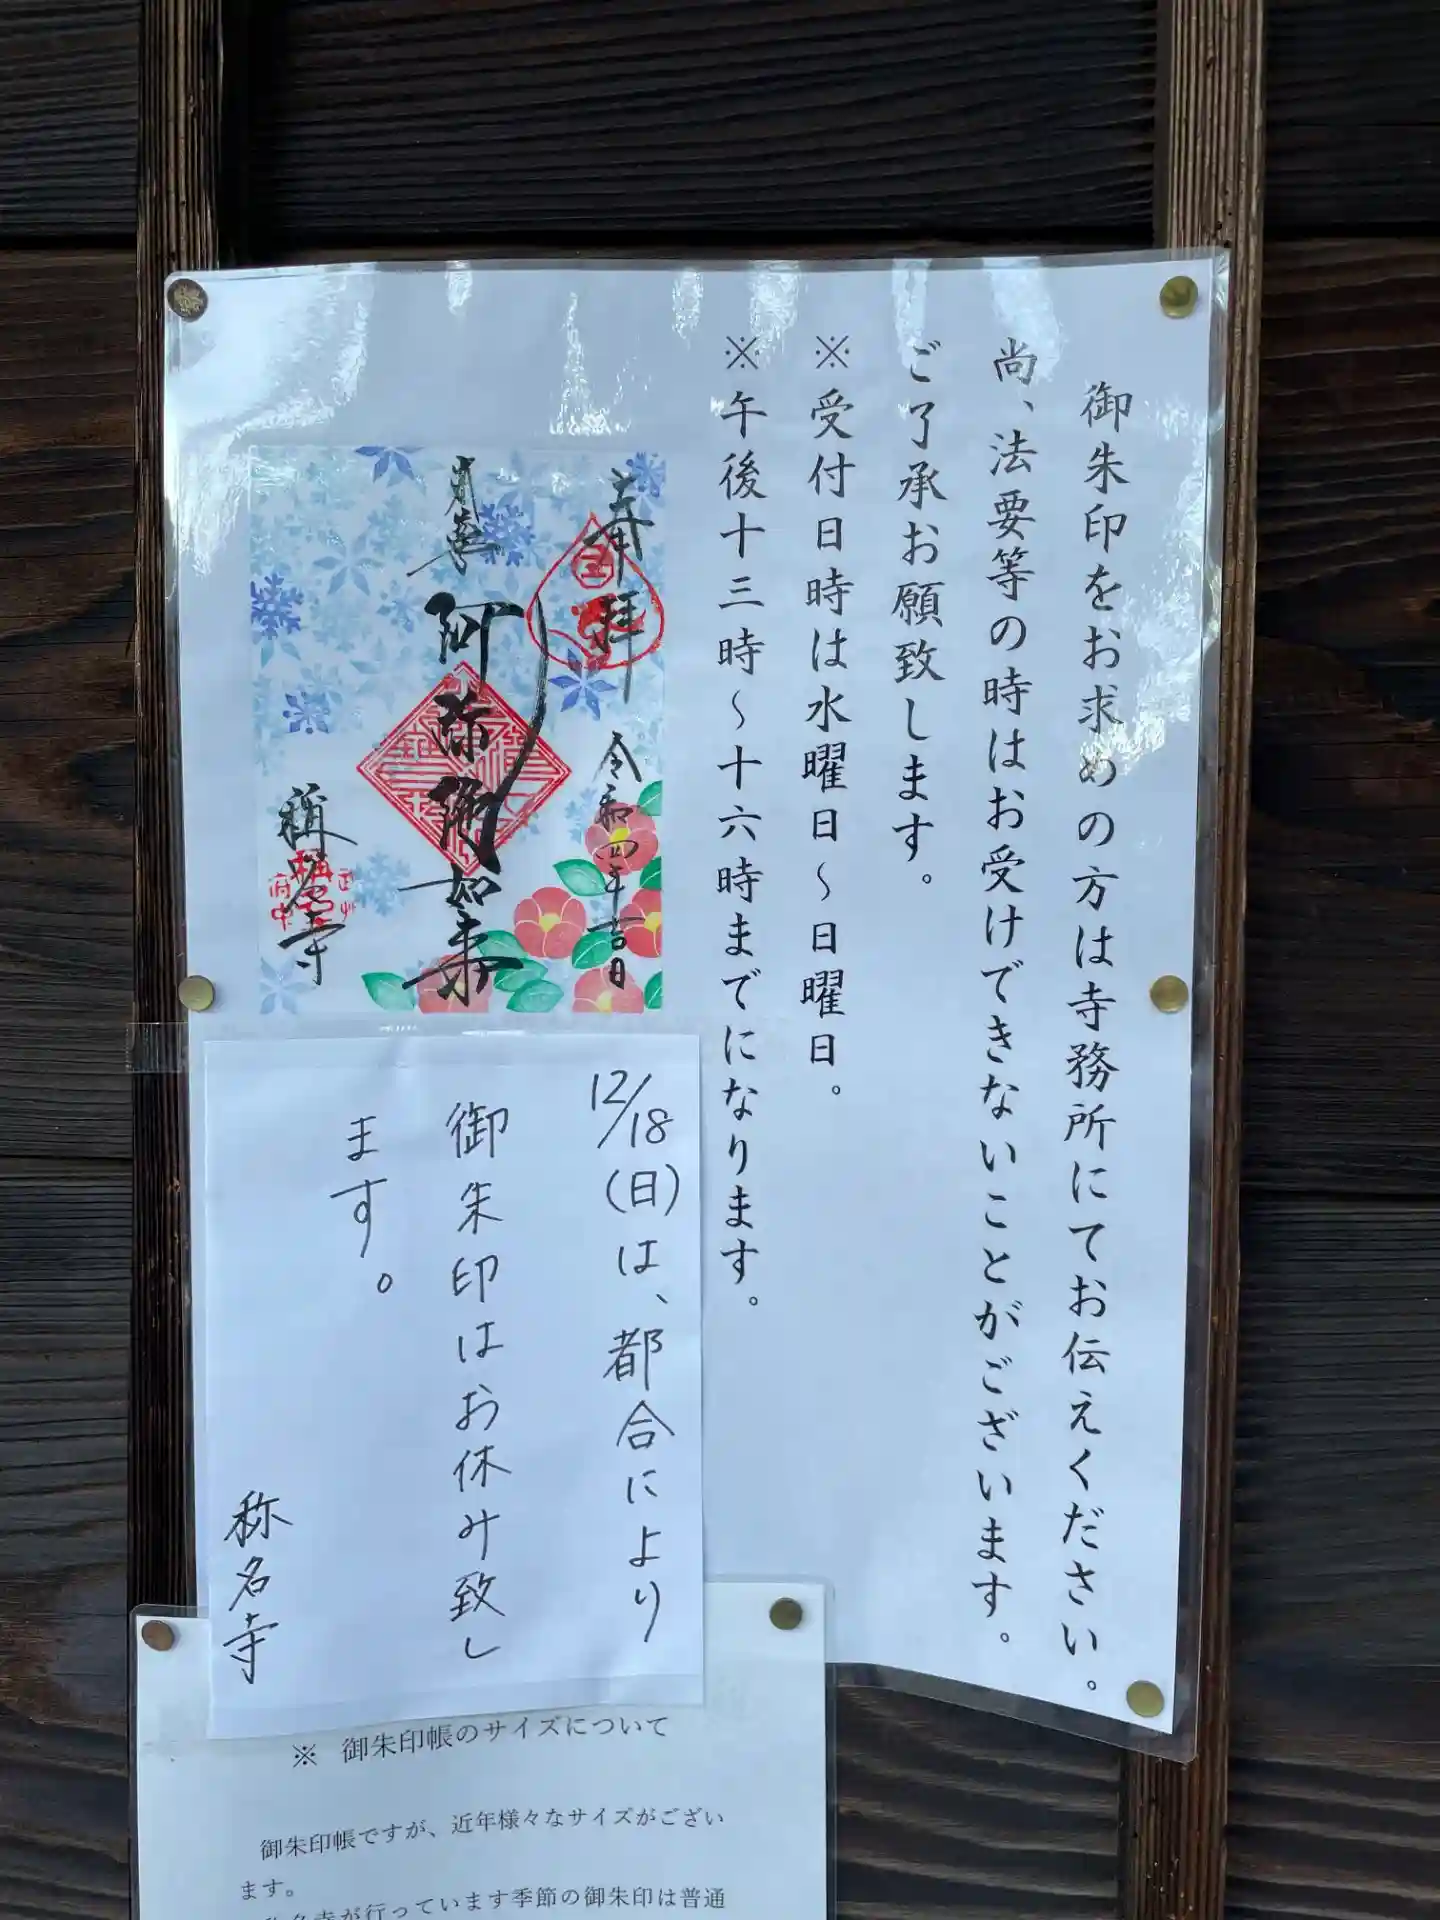 御朱印をお求めの方は寺務所にてお伝えください。
尚、法要等の時はお受けできないことがございます。
ご了承お願致します。
※受付日時は水曜日～日曜日。
※午後十三時～十六時までになります。
奉拝
令和四年吉日
阿弥陀如来
称名寺
武州
府中
12/18(日)は、都合により
御朱印はお休み致し
ます。
称名寺
※ 御朱印帳のサイズについて
御朱印帳ですが、近年様々なサイズがござい
ます。
が行っています季節の御朱印は普通